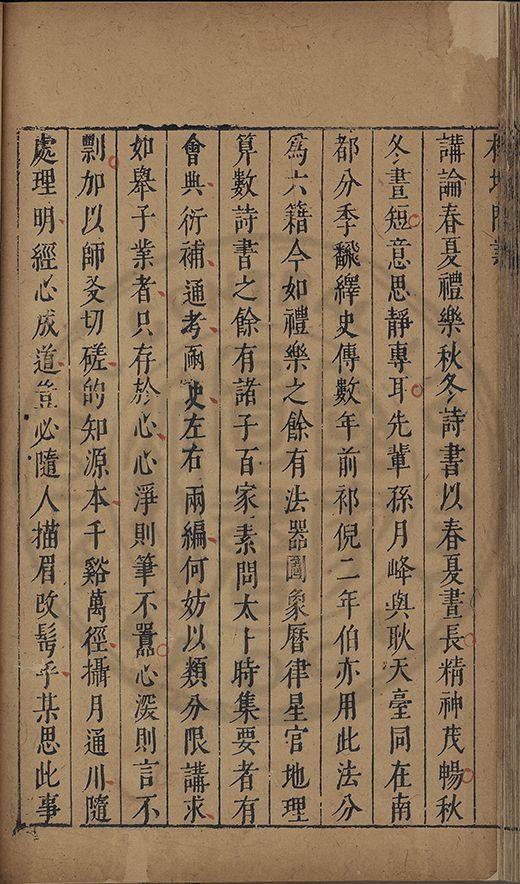 講論春夏禮樂秋冬詩書以春夏晝長精神茂暢秋
冬晝短意思靜專耳先輩孫月峰與耿天臺同在南
都分季飜繹史傳數年前祁倪二年伯亦用此法分
爲六籍今如禮樂之餘有法器圖象曆律星官地理
算數詩書之餘有諸子百家素問太卜時集要者有
會典衍補通考兩史左右兩編何妨以類分限講求
如舉子業者只存於心心淨則筆不囂心深則言不
剽加以師友切磋的知源本千谿萬徑攝月通川隨
處理明經心成道豈必隨人描眉改髩乎某思此事